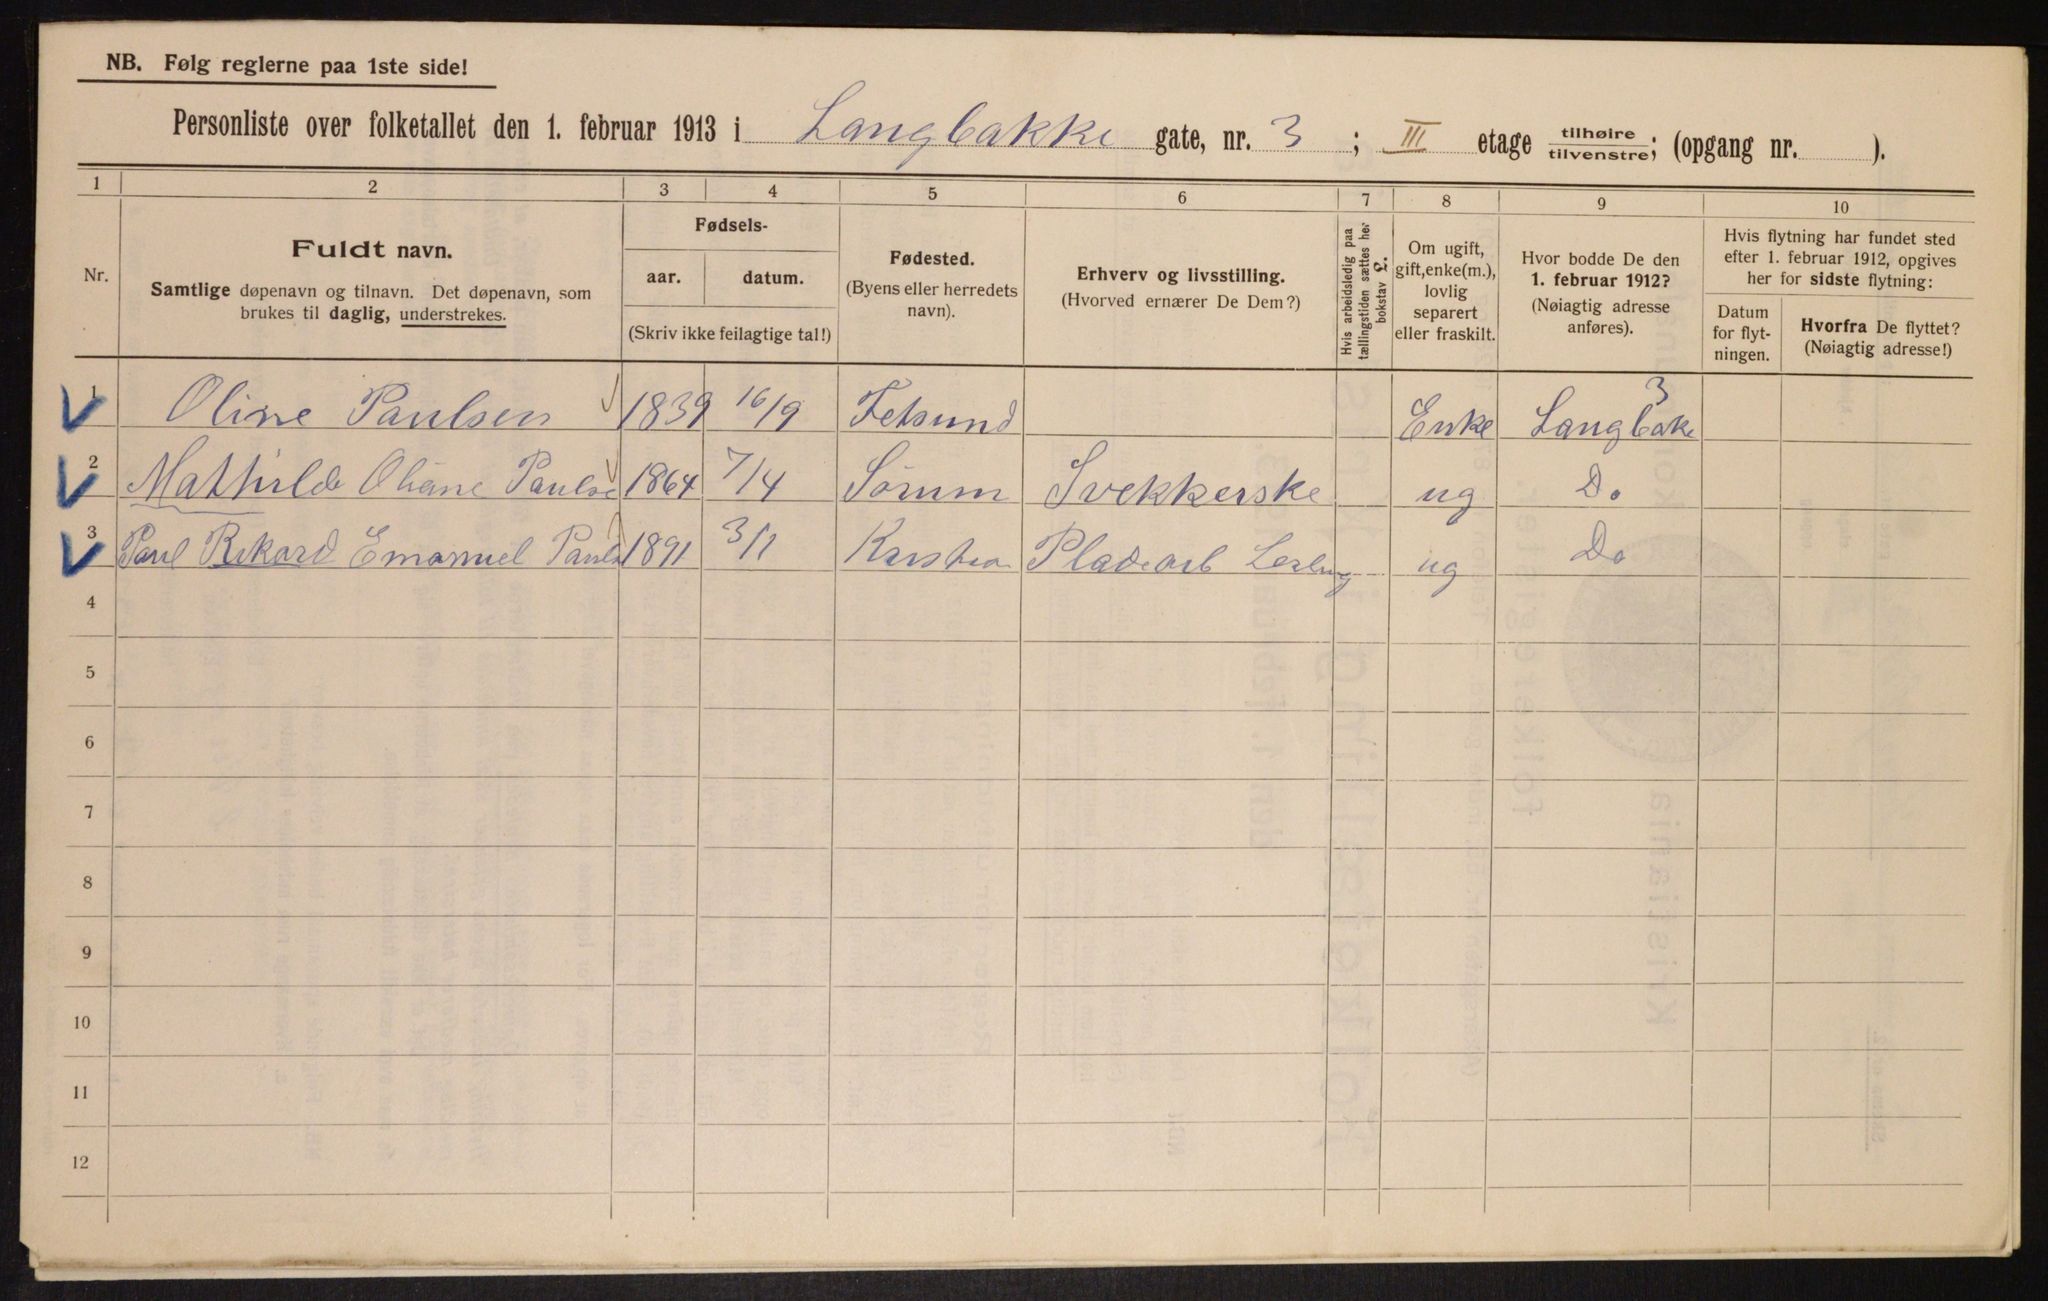 NB. Følg reglerne paa 1ste side!
Personliste over folketallet den 1. februar 1913 i Langbakke gate, nr. 3 ; III etage tilhøire tilvenstre; (opgang nr. ).
1 2 3 4 5 6 7 8 9 10
Nr.
Fuldt navn.
Samtlige døpenavn og tilnavn. Det døpenavn, som
brukes til daglig, understrekes.
Fødsels-
aar. datum.
(Skriv ikke feilagtige tal!)
Fødested.
(Byens eller herredets
navn).
Erhverv og livsstilling.
(Hvorved ernærer De Dem?)
Hvis arbeidsledig paa
tællingstiden sættes her
bokstav £.
Om ugift,
gift, enke(m.),
lovlig
separert
eller fraskilt.
Hvor bodde De den
1. februar 1912?
(Nøiagtig adresse
anføres).
Hvis flytning har fundet sted
efter 1. februar 1912, opgives
her for sidste flytning:
Datum
for flyt-
ningen.
Hvorfra De flyttet?
(Nøiagtig adresse!)
1 Oline Paulsen 1839 16/9 Fetsund Enke Langbake 3
2 Mathilde Oliane Paulse 1864 7/4 Sørum Svekkerske ug Do
3 Paul Rikard Emanuel Pauls 1891 3/1 Pladearb ug Do
4
5
6
7
8
9
10
11
12